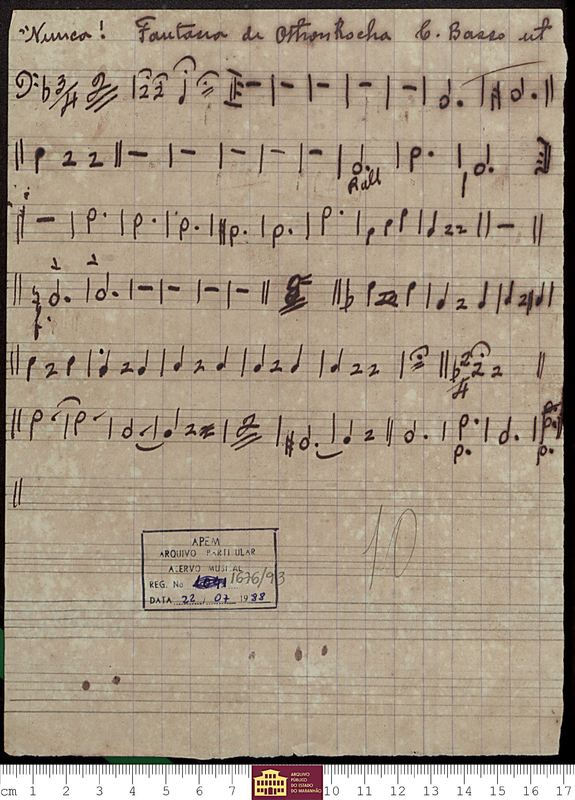 "Nunca! Fantasia de Othon Rocha C. Basso ut
3/4
Rall
2 2
f.
2/4
10
APEM
ARQUIVO PARTICULAR
ACERVO MUSICAL
REG. No 1676/93
DATA 22 / 07 1988
cm 1 2 3 4 5 6 7 10 11 12 13 14 15 16 17
ARQUIVO
PÚBLICO
DO ESTADO
DO MARANHÃO